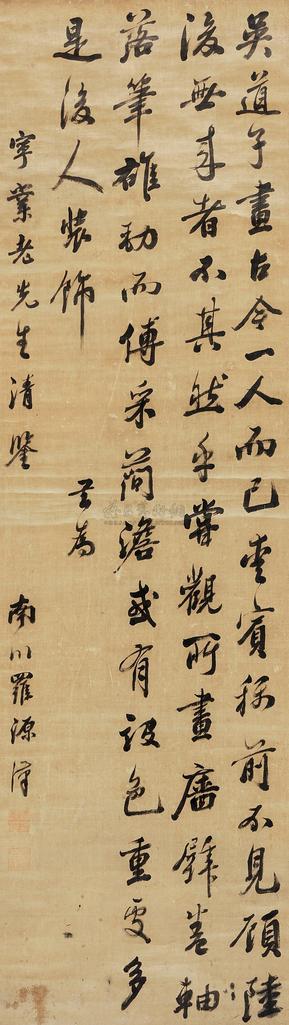 吴道子畫古今一人而已愛賓称前不見顧陸
後無来者不其然乎嘗觀所畫墻壁卷軸
落筆雄勁而傅采簡澹或有設色重處多
是後人裝飾
寧業老先生清鑒
南川羅源漢